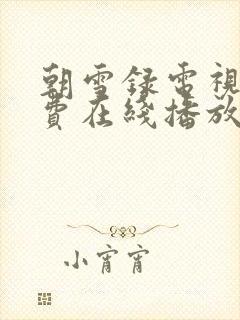 朝雪録電視
費在綫播放
小宵宵